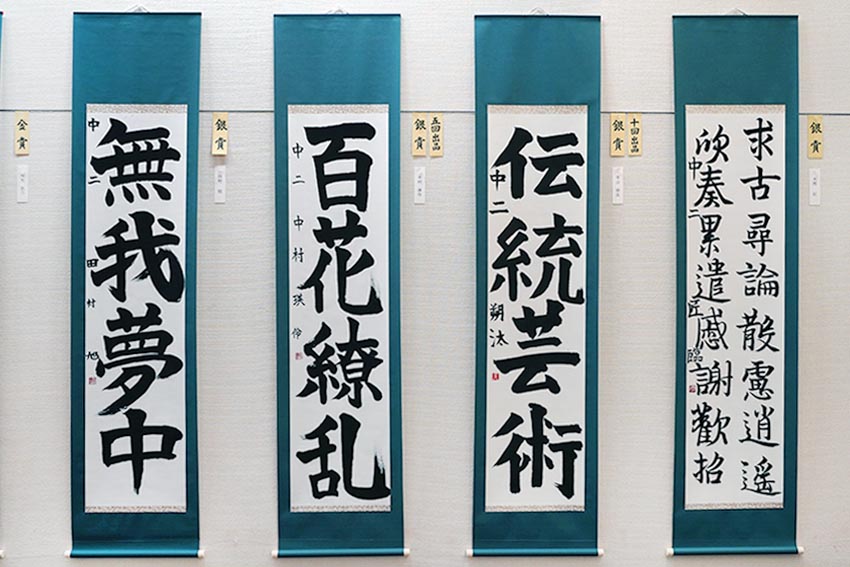 金賞
無我夢中
中二 田村 旭
銀賞
百花繚乱
中二 中村瑛伶
五回出品
銀賞
伝統芸術
中二 朔汰
十回出品
銀賞
求古尋論散慮逍遥
欣奏累遣慼謝歡招
中二 匠臨
銀賞